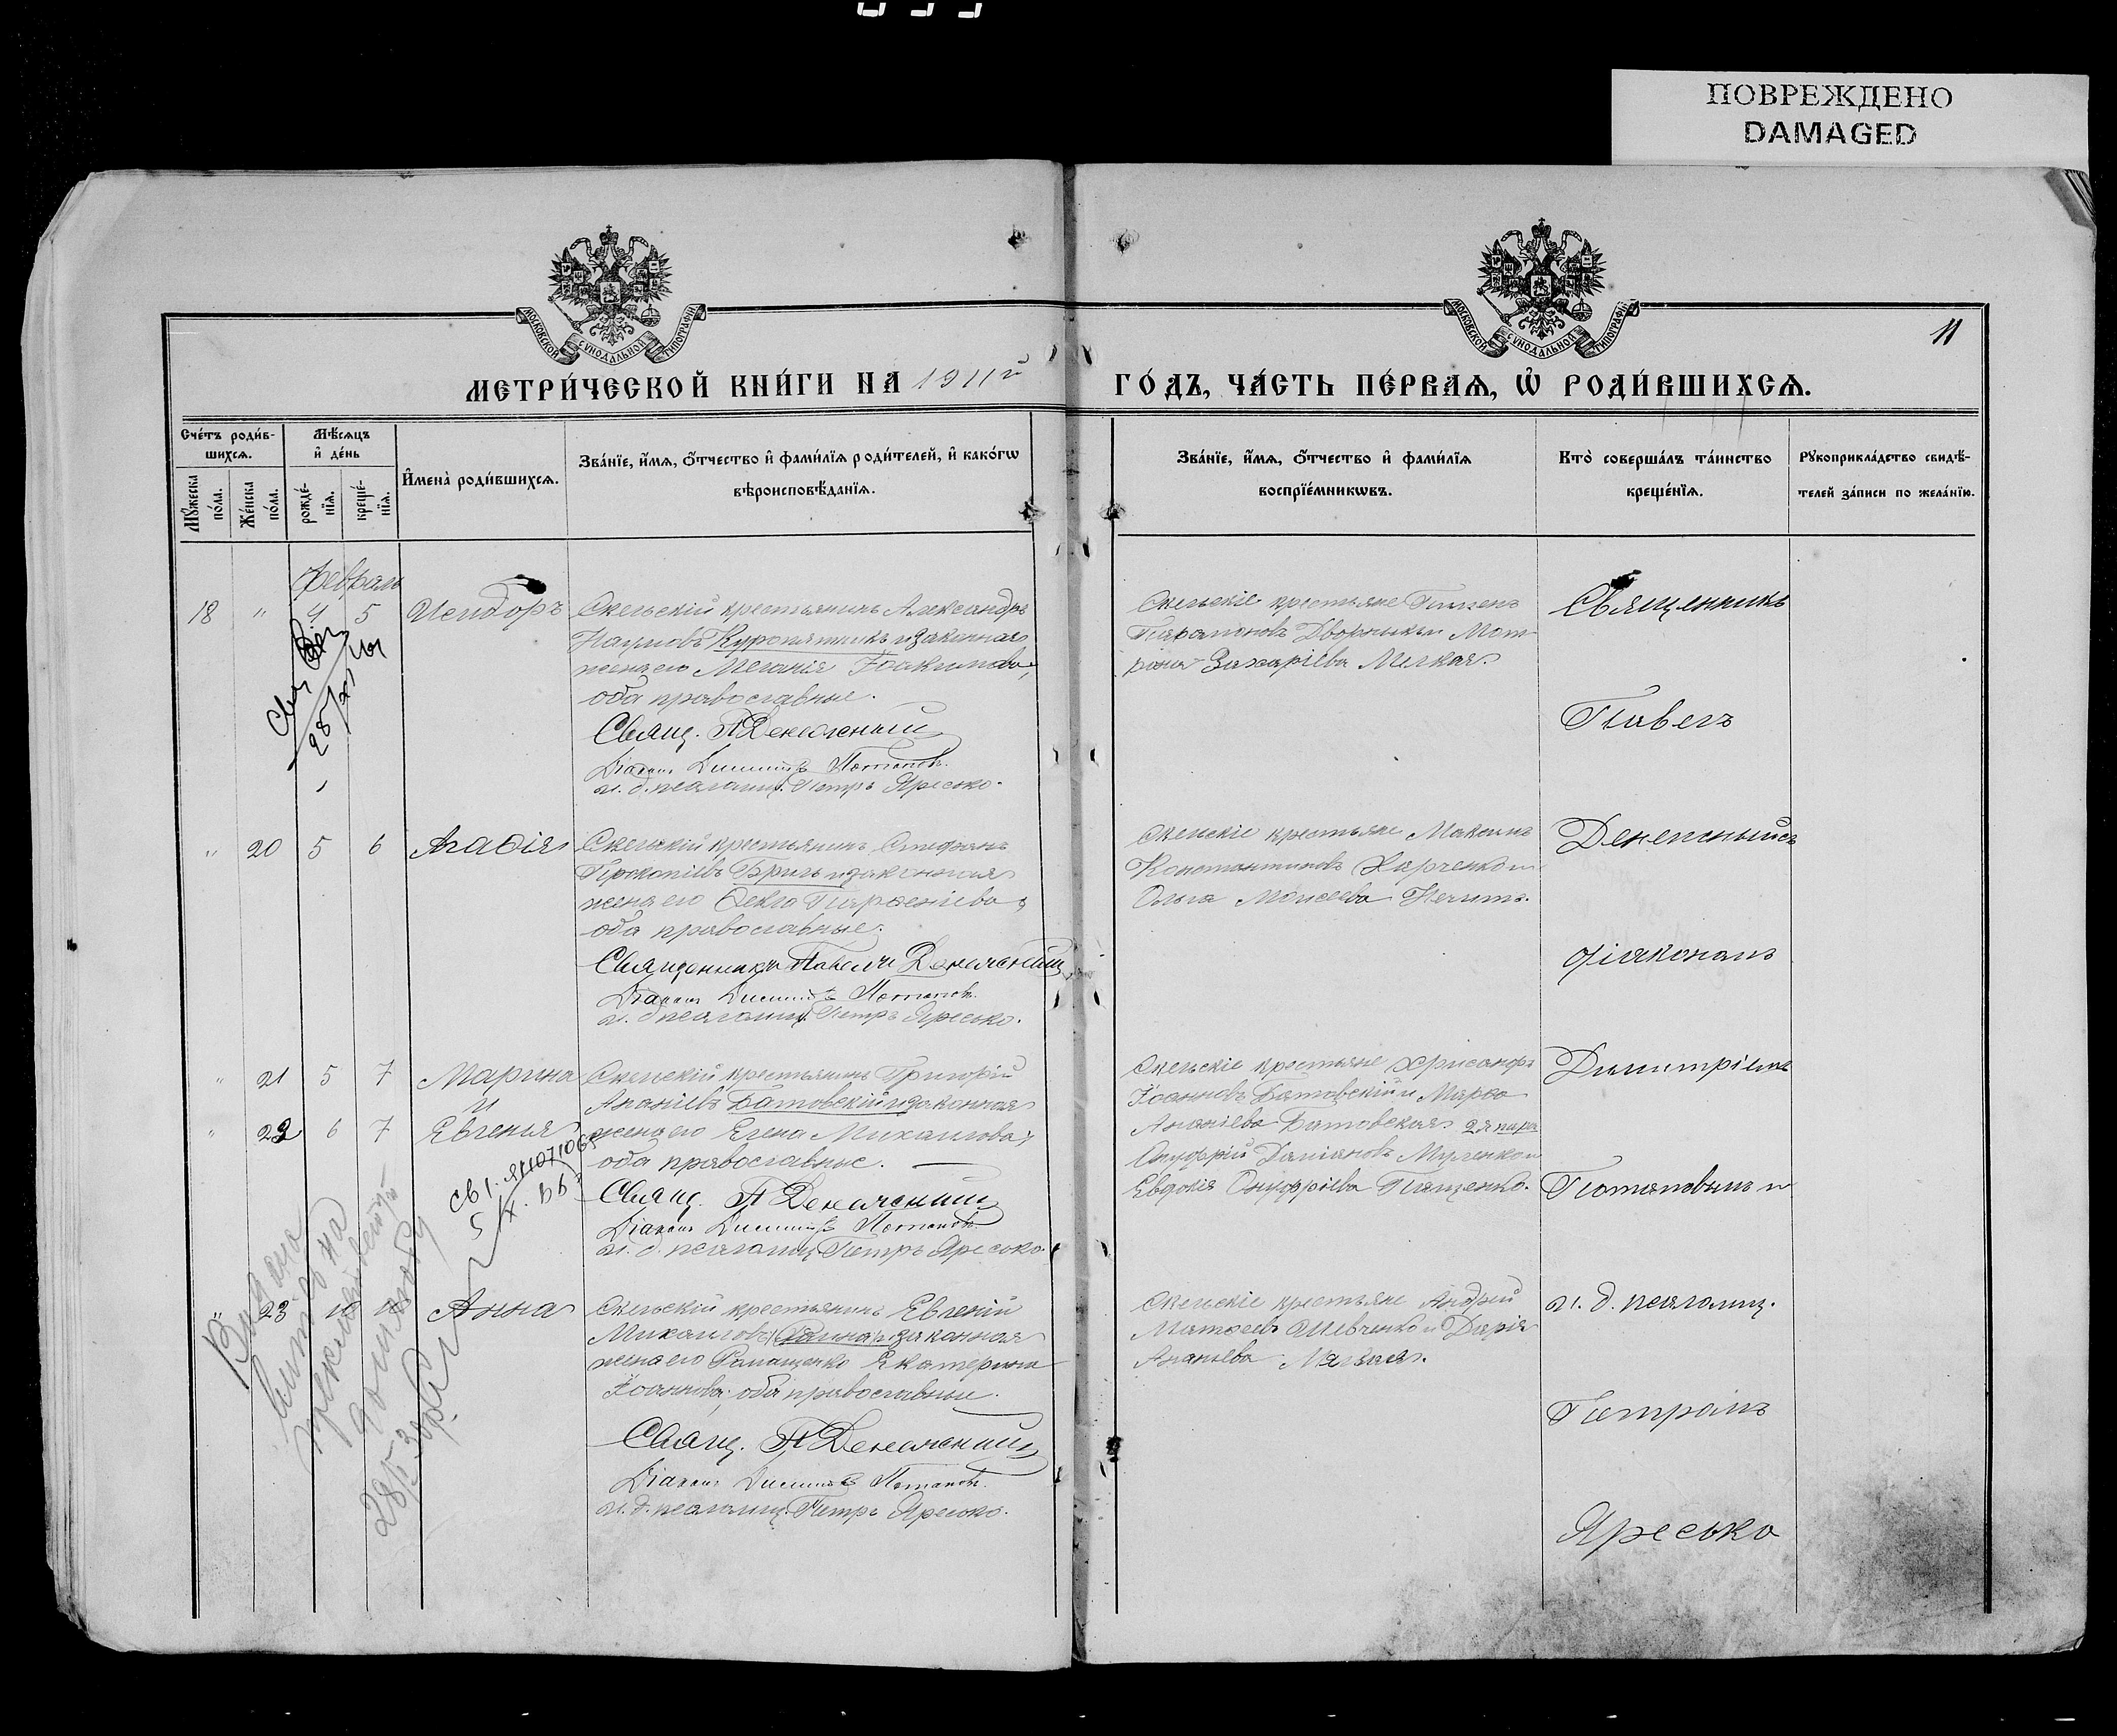 ПОВРЕЖДЕНО
DAMAGED
МОСКОВСКОЙ СѴНОДАЛЬНОЙ ТИПОГРАФІИ
МОСКОВСКОЙ СѴНОДАЛЬНОЙ ТИПОГРАФІИ
11
МЕТРИ́ЧЕСКОЙ КНИ́ГИ НА 1911й
ГО́ДЪ, ЧА́СТЬ ПЕ́РВАѦ, Ѡ҆ РОДИ́ВШИХСѦ.
Сче́тъ роди́в-
шихсѧ.
Мѣ́сѧцъ
и҆ де́нь
Мꙋ́жеска по́ла.
Же́нска по́ла.
рожде́-
нїѧ.
креще́-
нїѧ.
И҆мена̀ роди́вшихсѧ.
Зва́нїе, и҆́мѧ, ѻ҆́тчество и҆ фами́лїѧ роди́телей, и҆ како́гѡ
вѣроисповѣ́данїѧ.
Зва́нїе, и҆́мѧ, ѻ҆́тчество и҆ фами́лїѧ
воспрїе́мникѡвъ.
Кто̀ соверша́лъ та́инство
креще́нїѧ.
Рꙋкоприкла́дство свидѣ́-
телей за́писи по жела́нїю.
Февраль
18 " 4 5 Исидоръ
Скельскій крестьянинъ Александръ
Наумовъ Куропятникъ и законная
жена его Меланія Іоакимова,
оба православные.
Свящ. П Денежный
Діаконъ Димитрій Потаповъ.
и. д. псаломщ. Петръ Яресько.
Скельскіе крестьяне Пимен
Парамоновъ Дворникъ и Мот-
рона Захаріева Мягкая.
Священникъ
Павелъ
" 20 5 6 Агаѳія
Скельскій крестьянинъ Стефанъ
Прокопіевъ Бриль и законная
жена его Ѳекла Парѳеніева,
оба православные.
Священникъ Павелъ Денежный
Діаконъ Димитрій Потаповъ.
и. д. псаломщ. Петръ Яресько.
Скельскіе крестьяне Максимъ
Константиновъ Харченко и
Ольга Моисеева Нечитъ.
Денежный съ
діакономъ
" 21 5 7 Марина
и
" 22 6 7 Евгенія
Скельскій крестьянинъ Григорій
Ананіевъ Батовскій и законная
жена его Елена Михаилова,
оба православные.
Свящ. П Денежный
Діаконъ Димитрій Потаповъ.
и. д. псаломщ. Петръ Яресько.
Скельскіе крестьяне Хрисанфъ
Іоанновъ Батовскій и Марѳа
Ананіева Батовская. 2я пара
Онуфрій Даміановъ Муленко и
Евдокія Онуфріева Пащенко.
Димитріемъ
Потаповымъ и
" 23 10 10 Анна
Скельскій крестьянинъ Евгеній
Михаиловъ и законная
жена его Ромащенко Екатерина
Іоаннова, оба православные.
Свящ. П Денежный
Діаконъ Димитрій Потаповъ.
и. д. псаломщ. Петръ Яресько.
Скельскіе крестьяне Андрей
Матѳеевъ Шевченко и Дарія
Ананьева Мягкая.
и. д. псаломщ.
Петромъ
Яресько